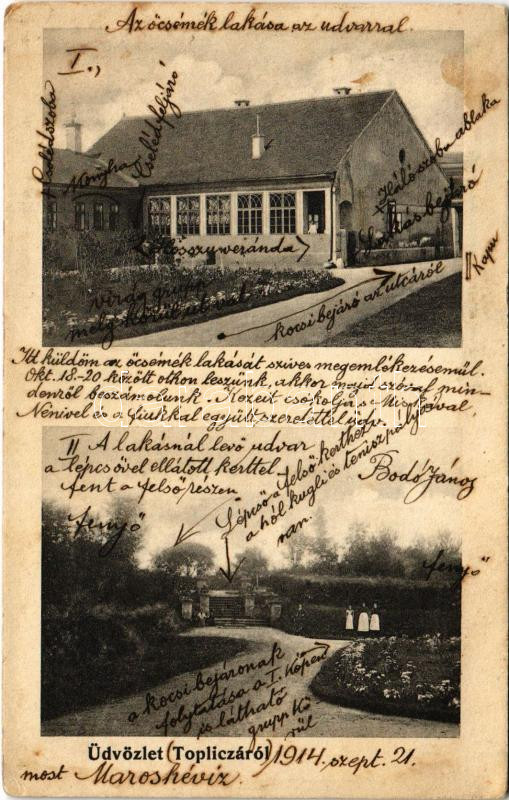 Az öcsémék lakása az udvarral.
I.,
Cselédszoba
Konyha
Cselédfeljáró
Hálószoba ablaka
bejáró
< Hosszu veránda >
Kapu
virág grupp
mely körül ut van
kocsi bejáró az utcáról
Itt küldöm az öcsémék lakását szives megemlékezésemül.
Okt. 18-20 között othon leszünk, akkor majd szóval min-
denről beszámolunk. Kezeit csókolja Miskával,
Nénivel és a fiukkal együtt szeretettel üdv.
Bodó János
II A lakásnál levő udvar
a lépcsővel ellátott kerttel
fent a felső részen
Lépcső a felső kerthez,
a hól kugli és tenisz pálya
van.
fenyő
fenyő
a kocsi bejáronak
folytatása a I. képen
is látható
grupp kö
rül
Üdvözlet (Topliczáról)
1914. szept. 21.
most Maroshéviz.